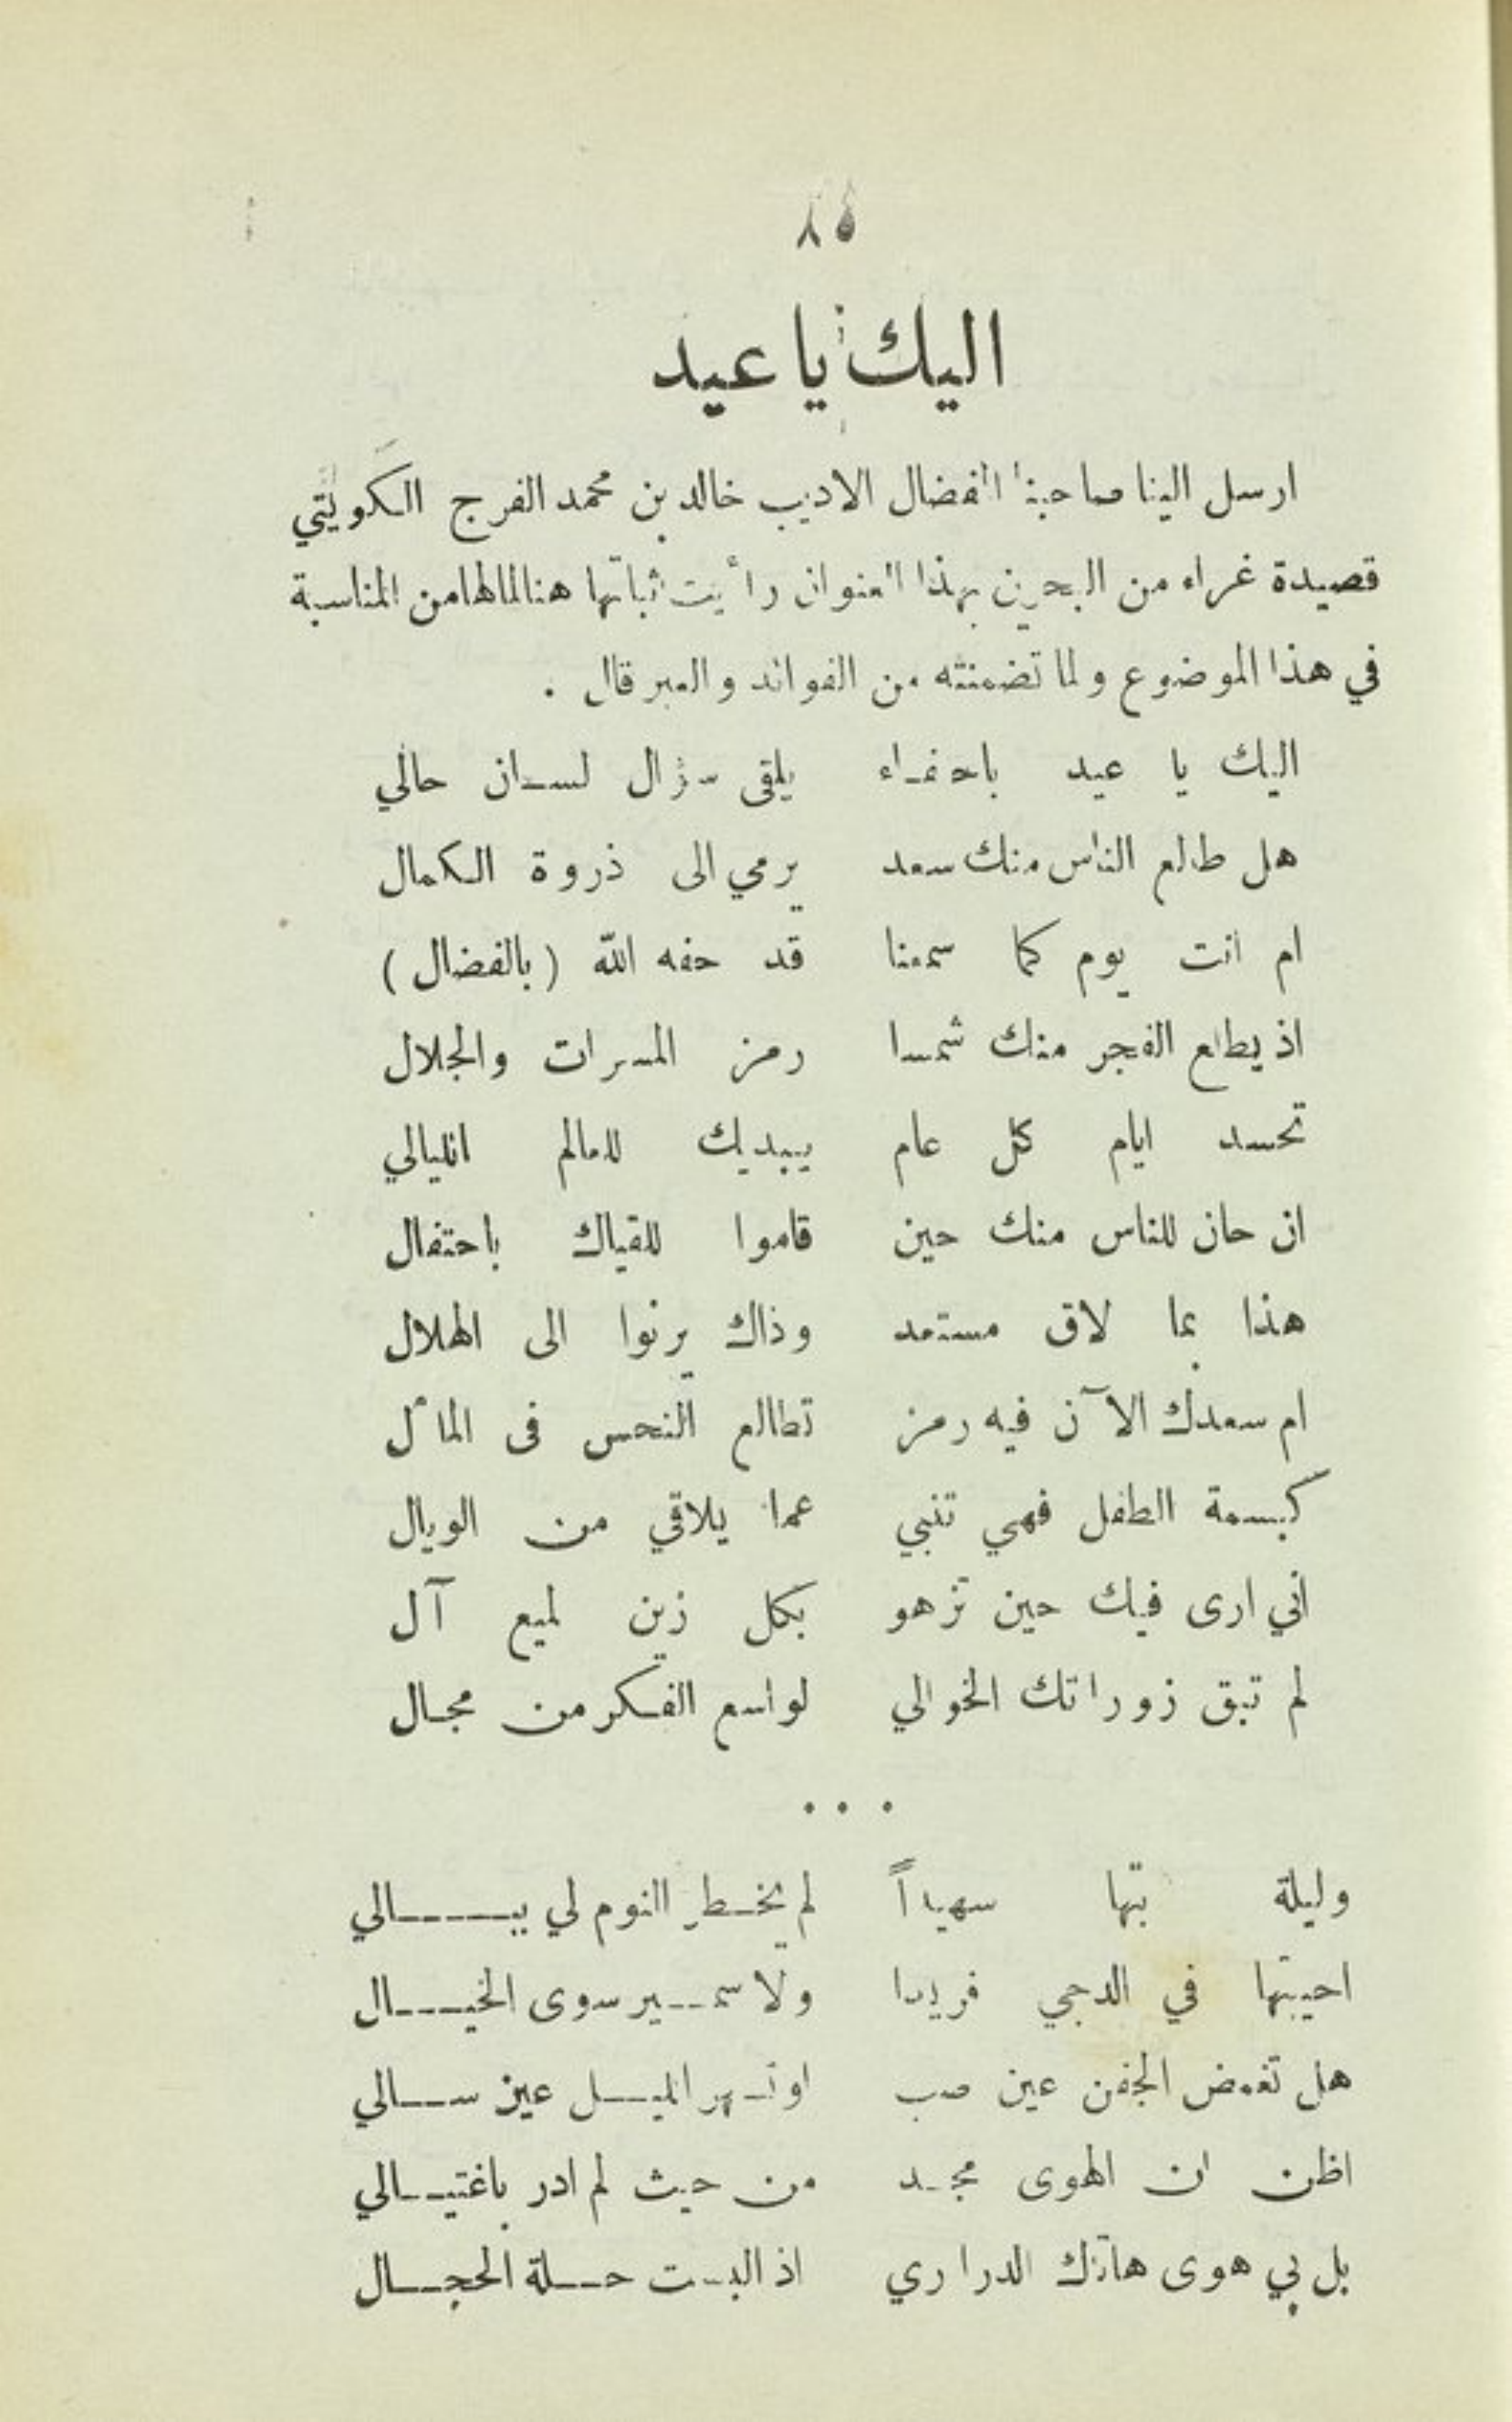 ٨٥
اليك يا عيد
ارسل الينا صاحبنا الفضال الاديب خالد بن محمد الفرج الكويتي
قصيدة غراء من البحرين بهذا العنوان رأيت ثباتها هنا لما لها من المناسبة
في هذا الموضوع ولما تضمنته من الفوائد والعبر قال .
اليك يا عيد باحتفاء يلقى سؤال لسان حالي
هل طالع الناس منك سعد يرمي الى ذروة الكمال
ام انت يوم كما سمعنا قد حفه الله ( بالفضال )
اذ يطلع الفجر منك شمسا رمز المسرات والجلال
تحسد ايام كل عام يبديك للعالم الليالي
ان حان للناس منك حين قاموا للقياك باحتفال
هذا بما لاق مستعد وذاك يرنوا الى الهلال
ام سعدك الآن فيه رمز تطالع النحس فى المآل
كبسمة الطفل فهي تنبي عما يلاقي من الوبال
اني ارى فيك حين تزهو بكل زين لميع آل
لم تبق زوراتك الخوالي لواسع الفكر من مجال
. . .
وليلة بتها سهيداً لم يخطر النوم لي ببالي
احييتها في الدجي فريدا ولا سمير سوى الخيال
هل تغمض الجفن عين صب او تسهر الليل عين سالي
اظن ان الهوى مجد من حيث لم ادر باغتيالي
بل بي هوى هاتك الدراري اذ البست حلة الحجال